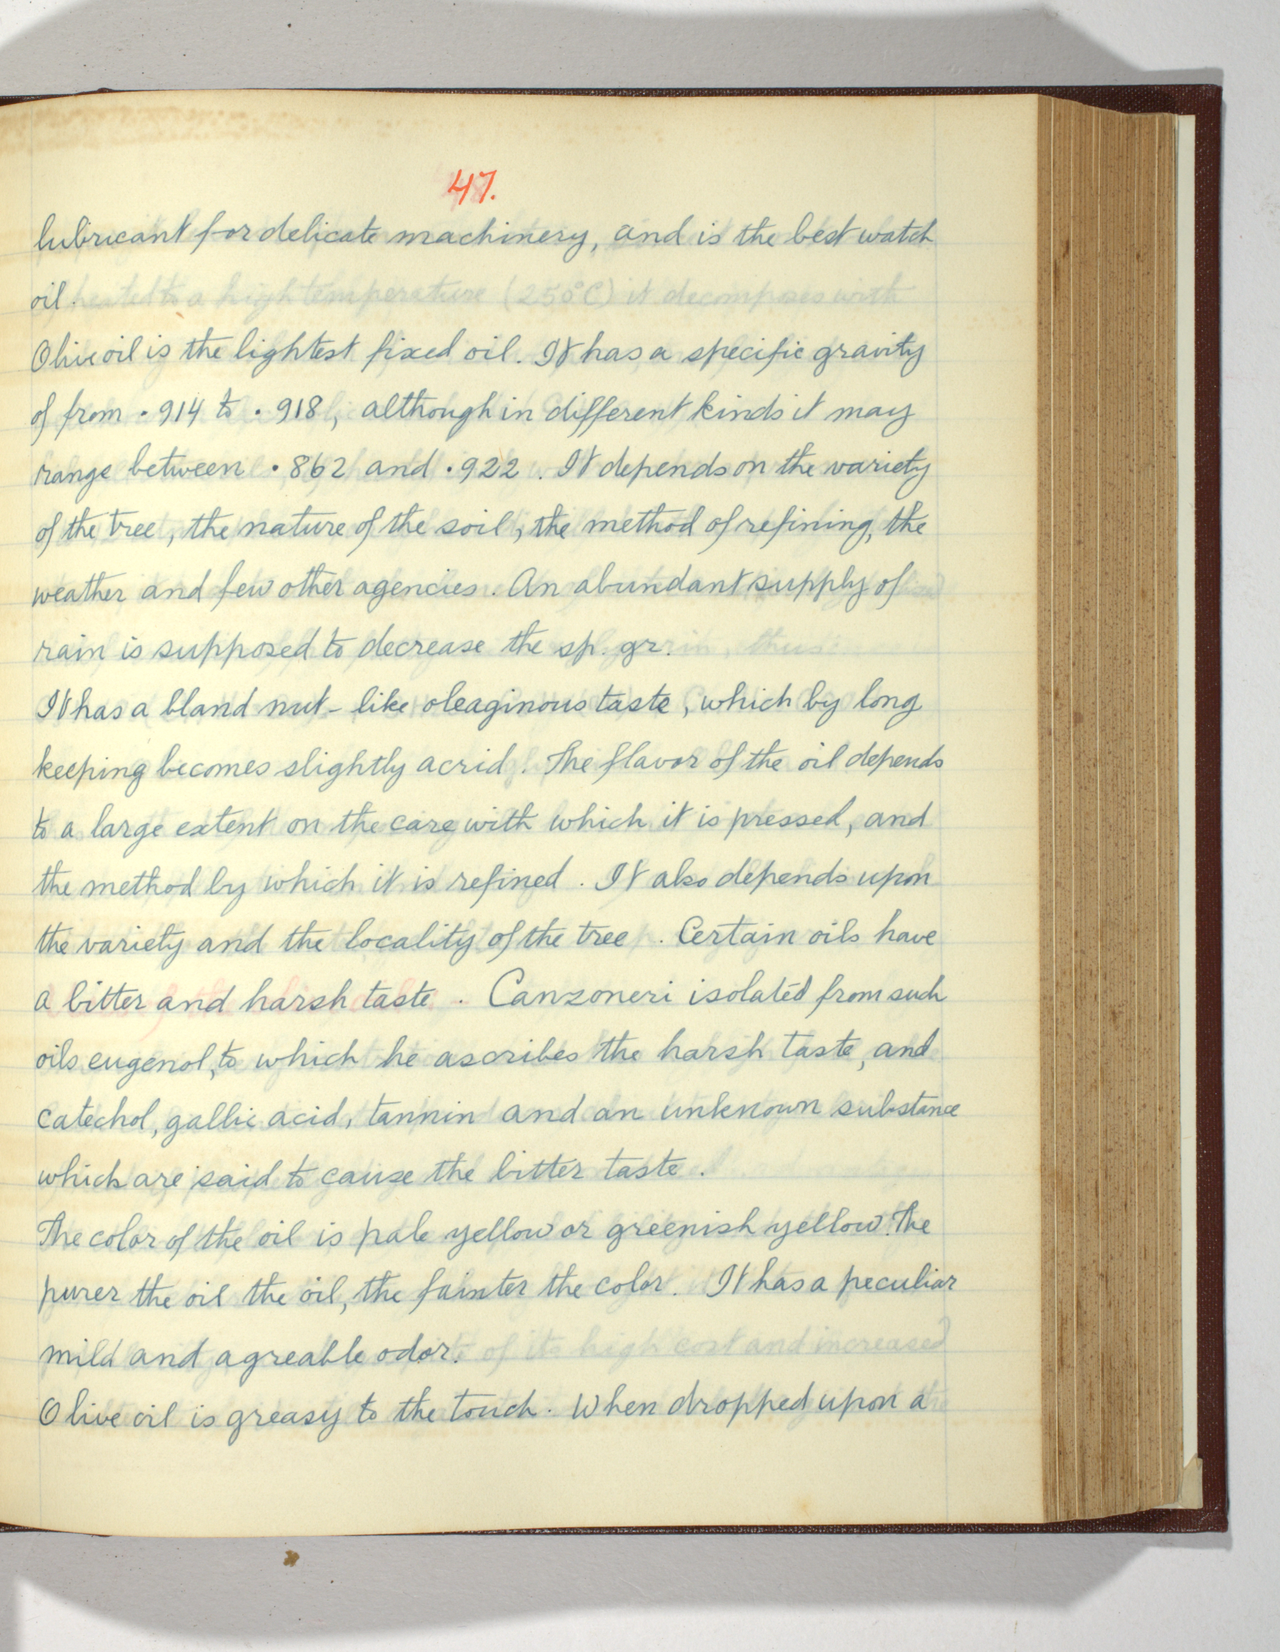 47.
lubricant for delicate machinery, and is the best watch
oil.
Olive oil is the lightest fixed oil. It has a specific gravity
of from .914 to .918, although in different kinds it may
range between .862 and .922. It depends on the variety
of the tree, the nature of the soil, the method of refining, the
weather and few other agencies. An abundant supply of
rain is supposed to decrease the sp. gr.
It has a bland nut-like oleaginous taste, which by long
keeping becomes slightly acrid. The flavor of the oil depends
to a large extent on the care with which it is pressed, and
the method by which it is refined. It also depends upon
the variety and the locality of the tree. Certain oils have
a bitter and harsh taste. Canzoneri isolated from such
oils eugenol, to which he ascribes the harsh taste, and
catechol, gallic acid, tannin and an unknown substance
which are said to cause the bitter taste.
The color of the oil is pale yellow or greenish yellow. The
purer the oil the oil, the fainter the color. It has a peculiar
mild and agreable odor.
Olive oil is greasy to the touch. When dropped upon a